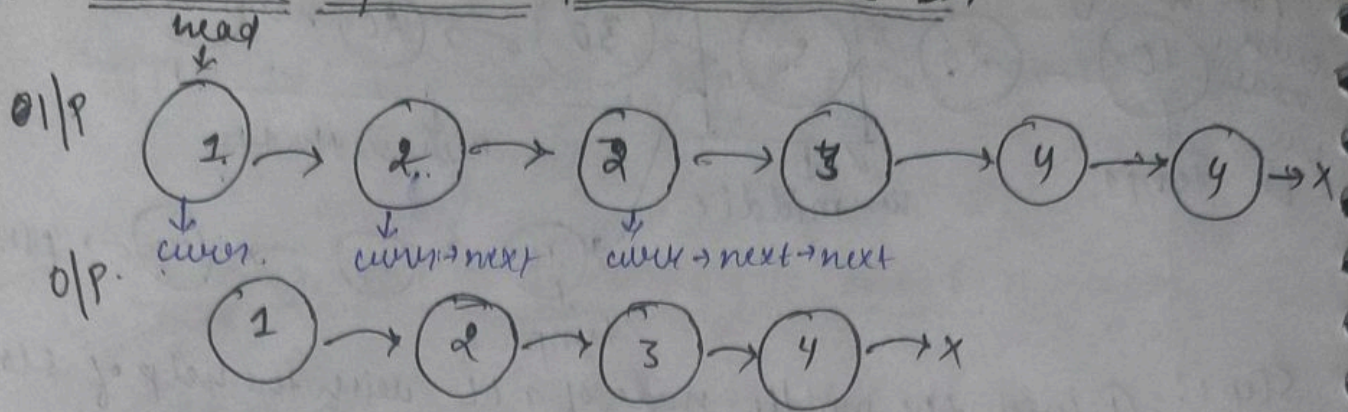 head
I/P 1 → 2 → 2 → 3 → 4 → 4 → X
curr. curr→next curr→next→next
O/P. 1 → 2 → 3 → 4 → X